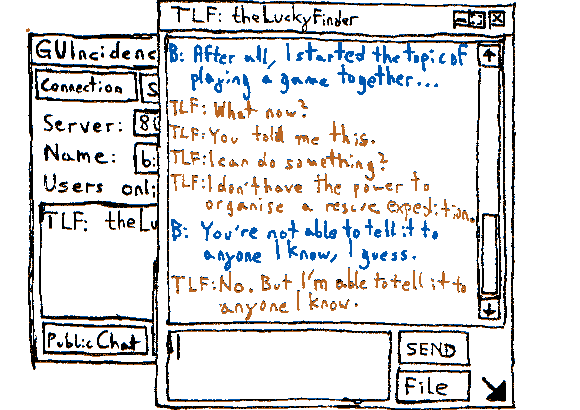 TLF: theLuckyFinder
B: After all, I started the topic of
playing a game together...
TLF: What now?
TLF: You told me this.
TLF: I can do something?
TLF: I don't have the power to
organise a rescue expedition.
B: You're not able to tell it to
anyone I know, I guess.
TLF: No. But I'm able to tell it to
anyone I know.
SEND
File
GUIncidenc
Connection
Server:
Name:
Users onli
TLF: theLu
Public Chat